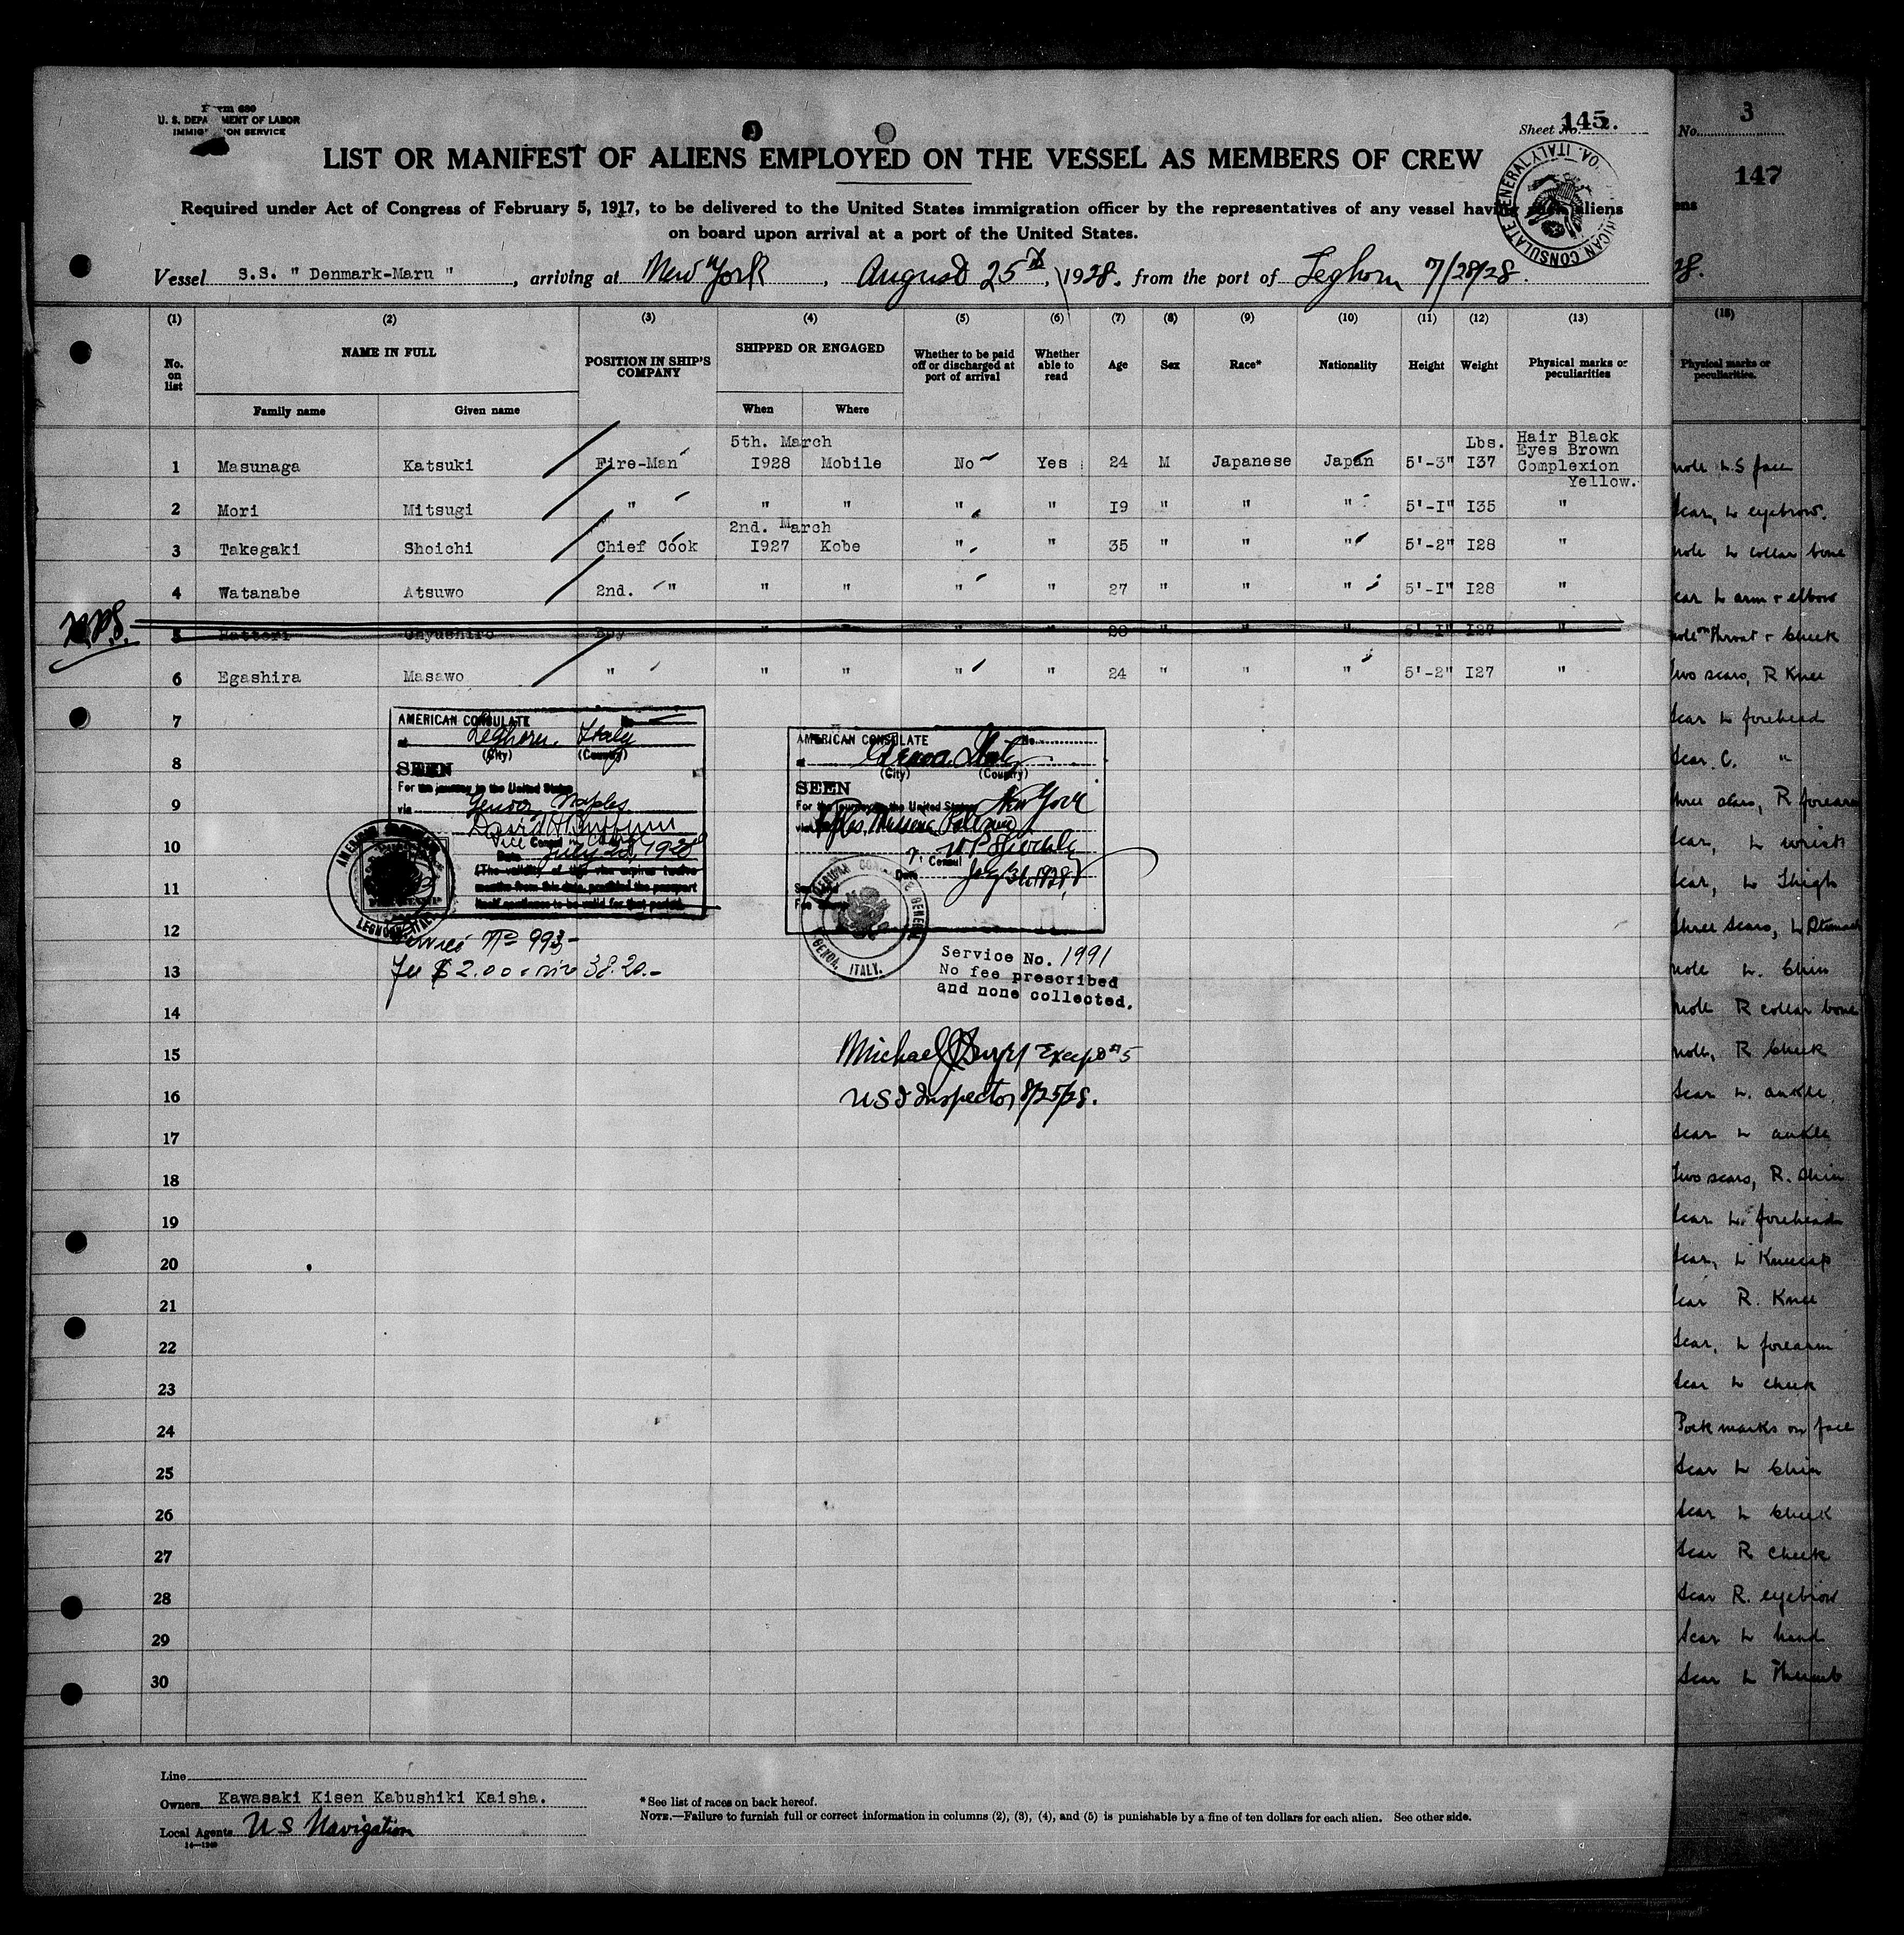 Form 680
U. S. DEPARTMENT OF LABOR
IMMIGRATION SERVICE
Sheet No. 145
LIST OR MANIFEST OF ALIENS EMPLOYED ON THE VESSEL AS MEMBERS OF CREW
Required under Act of Congress of February 5, 1917, to be delivered to the United States immigration officer by the representatives of any vessel having such aliens
on board upon arrival at a port of the United States.
AMERICAN CONSULATE GENERAL ITALY
Vessel S.S. " Denmark-Maru ", arriving at New York, August 25th, 1928, from the port of Leghorn 7/28/28.
(1) (2) (3) (4) (5) (6) (7) (8) (9) (10) (11) (12) (13)
No. on list NAME IN FULL POSITION IN SHIP'S COMPANY SHIPPED OR ENGAGED Whether to be paid off or discharged at port of arrival Whether able to read Age Sex Race* Nationality Height Weight Physical marks or peculiarities
Family name Given name When Where
5th. March Lbs. Hair Black
Eyes Brown
1 Masunaga Katsuki Fire-Man I928 Mobile No Yes 24 M Japanese Japan 5'-3" I37 Complexion
Yellow.
2 Mori Mitsugi " " " " " I9 " " " 5'-I" I35 "
2nd. March
3 Takegaki Shoichi Chief Cook I927 Kobe " " 35 " " " 5'-2" I28 "
4 Watanabe Atsuwo 2nd. " " " " " 27 " " " 5'-I" I28 "
5 Hattori Boy " " 28 " " 5'-I" I27
6 Egashira Masawo " " " " " 24 " " " 5'-2" I27 "
7
8
9
10
11
12
13
14
15
16
17
18
19
20
21
22
23
24
25
26
27
28
29
30
AMERICAN CONSULATE No.
at Leghorn, Italy
(City) (Country)
SEEN
For the journey to the United States
via Genoa, Naples
Vice Consul
Date July 28, 1928
(The validity of this visa expires twelve
months from this date, provided the passport
itself continues to be valid for that period.
LEGHORN, ITALY
Service No 993
Fee $ 2.00 38.20.-
AMERICAN CONSULATE No.
at Genoa Italy
(City) (Country)
SEEN
For the journey to the United States New York
via Naples, Messina, Palermo
Consul
Date July 31 1928
AMERICAN CONSULATE GENERAL
GENOA, ITALY.
Service No. 1991
No fee prescribed
and none collected.
Michael Except #5
USI Inspector 8/25/28.
Line
Owners Kawasaki Kisen Kabushiki Kaisha.
Local Agents U S Navigation
* See list of races on back hereof.
NOTE.—Failure to furnish full or correct information in columns (2), (3), (4), and (5) is punishable by a fine of ten dollars for each alien. See other side.
No. 3
147
ens
28.
Physical marks or
peculiarities.
mole L.S face
Scar, L eyebrow.
mole L collar bone
scar L arm & elbow
mole on throat & cheek
Two scars, R Knee
Scar L forehead
Scar C. "
three scars, R forearm
Scar, L wrist
Scar, L Thigh
three scars, L Stomach
mole L. Chin
mole R collar bone
mole, R Cheek
Scar L. ankle
Scar L ankle
Two scars, R. Shin
Scar L. forehead
Scar, L Kneecap
Scar R. Knee
Scar, L forearm
Scar L cheek
Pock marks on face
Scar L Chin
Scar L Cheek
Scar R cheek
Scar R. eyebrow
Scar L hand
Scar L Thumb